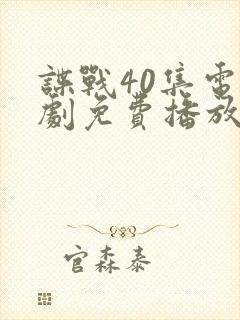 諜戰40集電
劇免費播放
官森泰